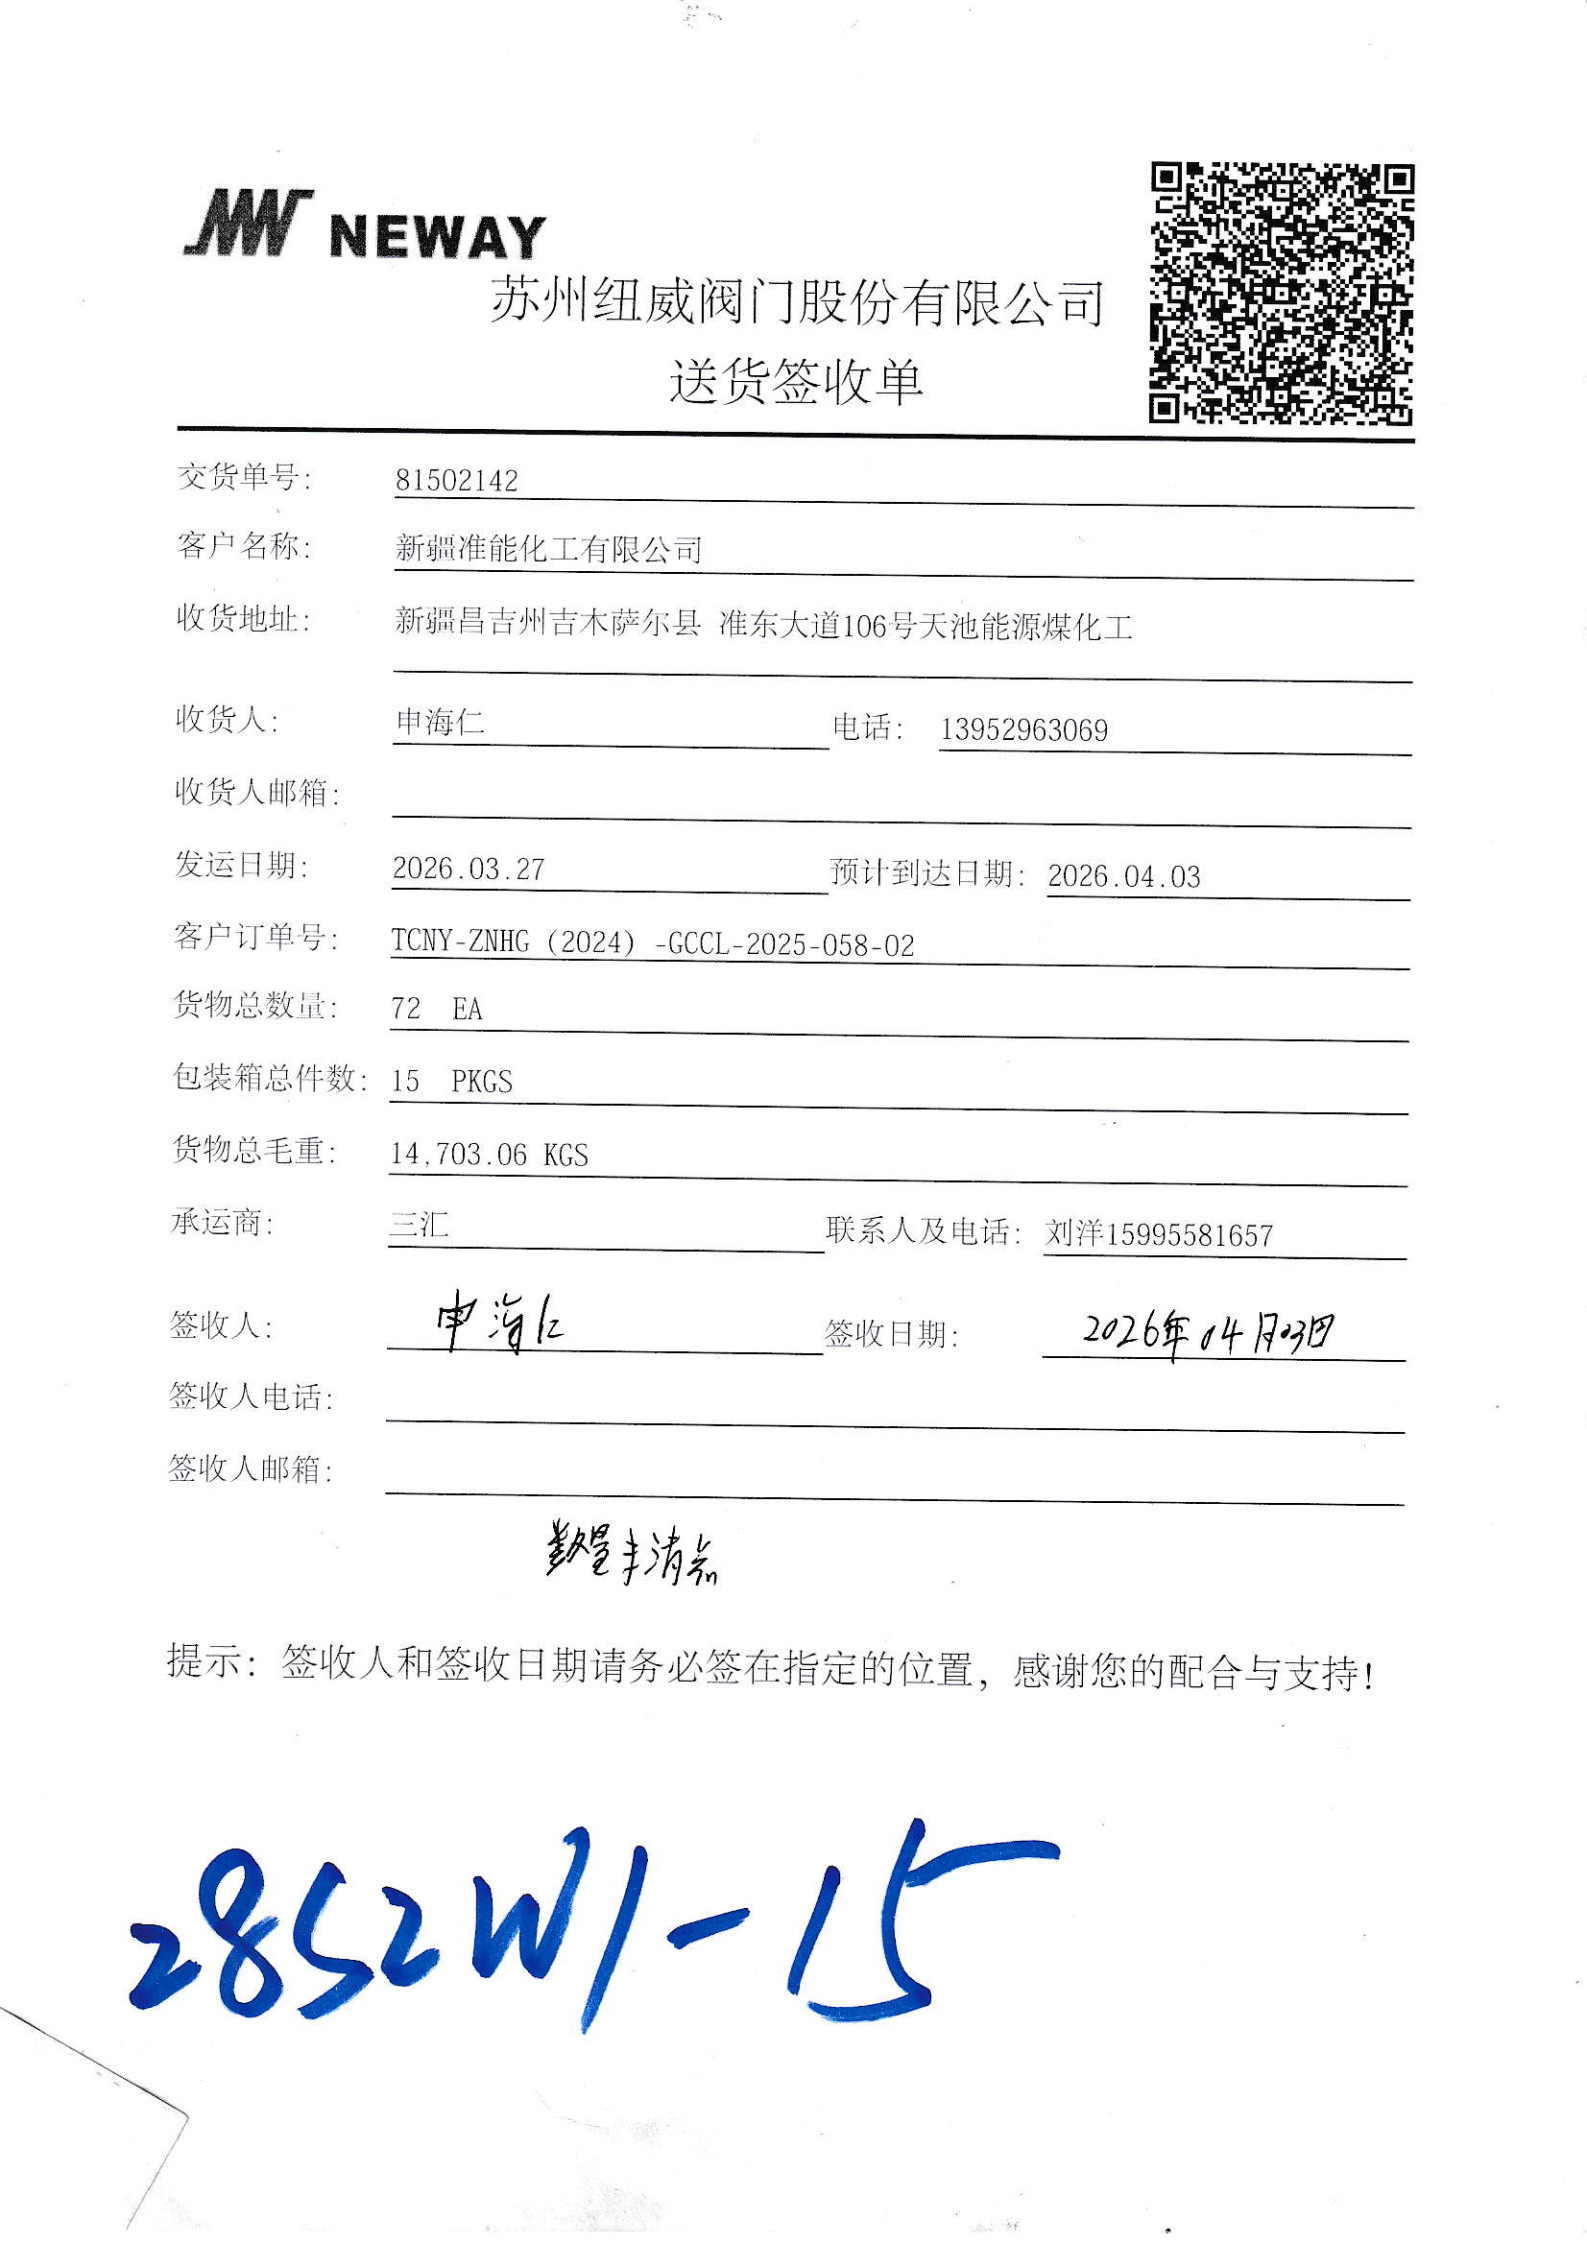 NEWAY
苏州纽威阀门股份有限公司
送货签收单
交货单号: 81502142
客户名称: 新疆准能化工有限公司
收货地址: 新疆昌吉州吉木萨尔县 准东大道106号天池能源煤化工
收货人: 申海仁 电话: 13952963069
收货人邮箱:
发运日期: 2026.03.27 预计到达日期: 2026.04.03
客户订单号: TCNY-ZNHG (2024) -GCCL-2025-058-02
货物总数量: 72 EA
包装箱总件数: 15 PKGS
货物总毛重: 14,703.06 KGS
承运商: 三汇 联系人及电话: 刘洋15995581657
签收人: 申海仁 签收日期: 2026年04月03日
签收人电话:
签收人邮箱:
数量未清点
提示: 签收人和签收日期请务必签在指定的位置, 感谢您的配合与支持!
2852W1-15